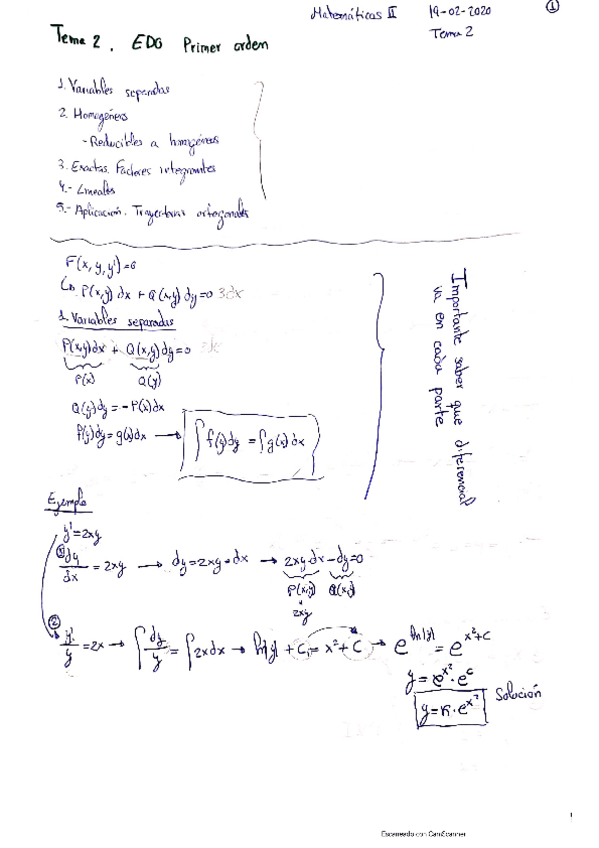 Matemáticas II 19-02-2020 ①
Tema 2
Tema 2. EDO Primer orden
1. Variables separadas
2. Homogéneas
- Reducibles a homogéneas
3. Exactas. Factores integrantes
4.- Lineales
5.- Aplicación. Trayectorias ortogonales
F(x, y, y')=0
↳ P(x,y) dx + Q(x,y) dy=0
1. Variables separadas
P(x,y)dx + Q(x,y)dy=0
P(x) Q(y)
Q(y)dy = -P(x)dx
f(y)dy = g(x)dx → ∫f(y)dy = ∫g(x)dx
Importante saber que diferencial
va en cada parte
Ejemplo
y'=2xy
① dy/dx = 2xy → dy=2xy·dx → 2xy·dx-dy=0
P(x,y) Q(x,y)
2xy
② y'/y =2x → ∫dy/y = ∫2xdx → ln|y| + C₁ = x²+C → e^ln|y| = e^x²+C
y= e^x²·e^c
y=K·e^x² Solución
1
Escaneado con CamScanner